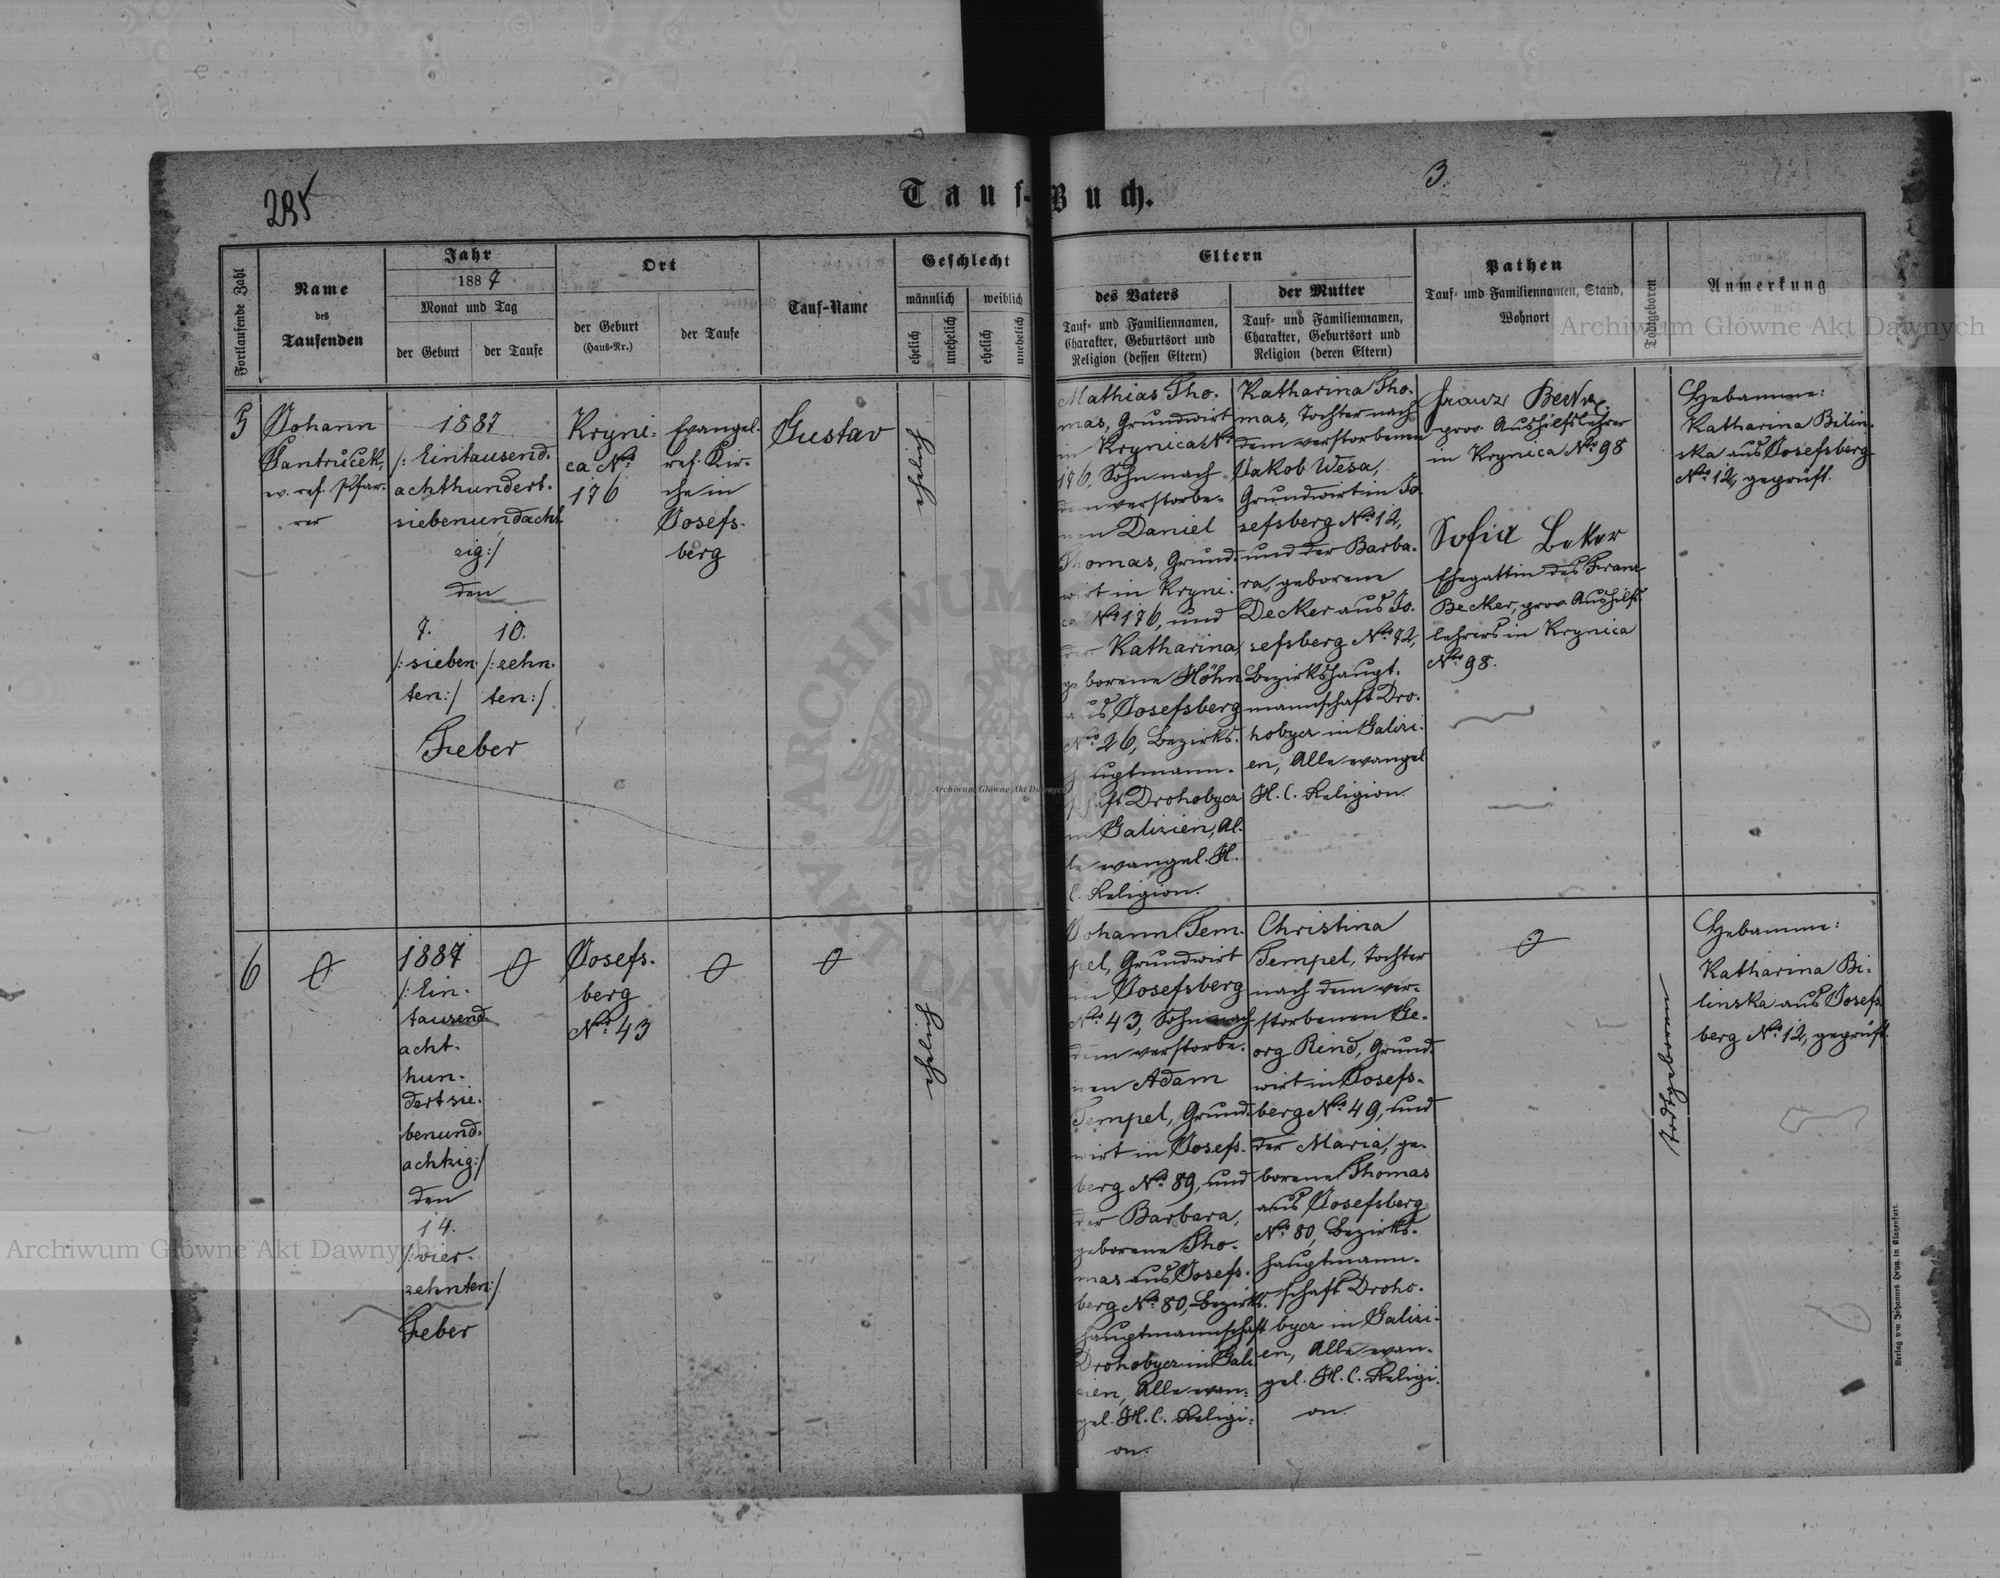 235
3.
Tauf-Buch.
Fortlaufende Zahl
Name
des
Taufenden
Jahr
1887
Monat und Tag
der Geburt
der Taufe
Ort
der Geburt
(Haus-Nr.)
der Taufe
Tauf-Name
Geschlecht
männlich
weiblich
ehelich
unehelich
ehelich
unehelich
Eltern
des Vaters
Tauf- und Familiennamen,
Charakter, Geburtsort und
Religion (dessen Eltern)
der Mutter
Tauf- und Familiennamen,
Charakter, Geburtsort und
Religion (deren Eltern)
Pathen
Tauf- und Familiennamen, Stand,
Wohnort
Todtgeboren
Anmerkung
5
Johann
Jantrůček,
ev. ref. Pfar-
rer
1887
/: Eintausend-
achthundert-
siebenundacht-
zig :/
den
7.
/: sieben-
ten :/
10.
/: zehn-
ten :/
Feber
Kryni-
ca No
176
Evangel.
ref. Kir-
che in
Josefs-
berg
Gustav
ehelich
Mathias Tho-
mas, Grundwirt
in Krynica No
176, Sohn nach
dem verstorbe-
nen Daniel
Thomas, Grund-
wirt in Kryni-
ca No 176, und
der Katharina
geborene Höhn
aus Josefsberg
No 26, Bezirks-
hauptmann-
schaft Drohobycz
in Galizien, Al-
le evangel. H.
C. Religion.
Katharina Tho-
mas, Tochter nach
dem verstorbenen
Jakob Wesa,
Grundwirt in Jo-
sefsberg No 12,
und der Barba-
ra, geborene
Decker aus Jo-
sefsberg No 72,
Bezirkshaupt-
mannschaft Dro-
hobycz in Galizi-
en, Alle evangel
H. C. Religion.
Franz Becker
prov. Aushilfslehrer
in Krynica No 98
Sofia Beker
Ehegattin des Franz
Becker, prov. Aushilfs-
lehrers in Krynica
No 98.
Hebamme:
Katharina Bilin-
ska aus Josefsberg
No 12, geprüft.
6
1887
/: Ein-
tausend-
acht-
hun-
dertsie-
benund-
achtzig :/
den
14.
/: vier-
zehnten :/
Feber
Josefs-
berg
No 43
ehelich
Johann Tem-
pel, Grundwirt
in Josefsberg
No 43, Sohn nach
dem verstorbe-
nen Adam
Tempel, Grund-
wirt in Josefs-
berg No 89, und
der Barbara,
geborene Tho-
mas aus Josefs-
berg No 80, Bezirks-
hauptmannschaft
Drohobycz in Gali-
zien, Alle evan-
gel. H. C. Religi-
on.
Christina
Tempel, Tochter
nach dem ver-
storbenen Ge-
org Rind, Grund-
wirt in Josefs-
berg No 49, und
der Maria, ge-
borene Thomas
aus Josefsberg
No 80, Bezirks-
hauptmann-
schaft Droho-
bycz in Galizi-
en, Alle evan-
gel. H. C. Religi-
on.
todtgeboren
Hebamme:
Katharina Bi-
linska aus Josefs-
berg No 12, geprüft.
Verlag von Johannes Heyn in Klagenfurt.
Archiwum Główne Akt Dawnych
Archiwum Główne Akt Dawnych
Archiwum Główne Akt Dawnych